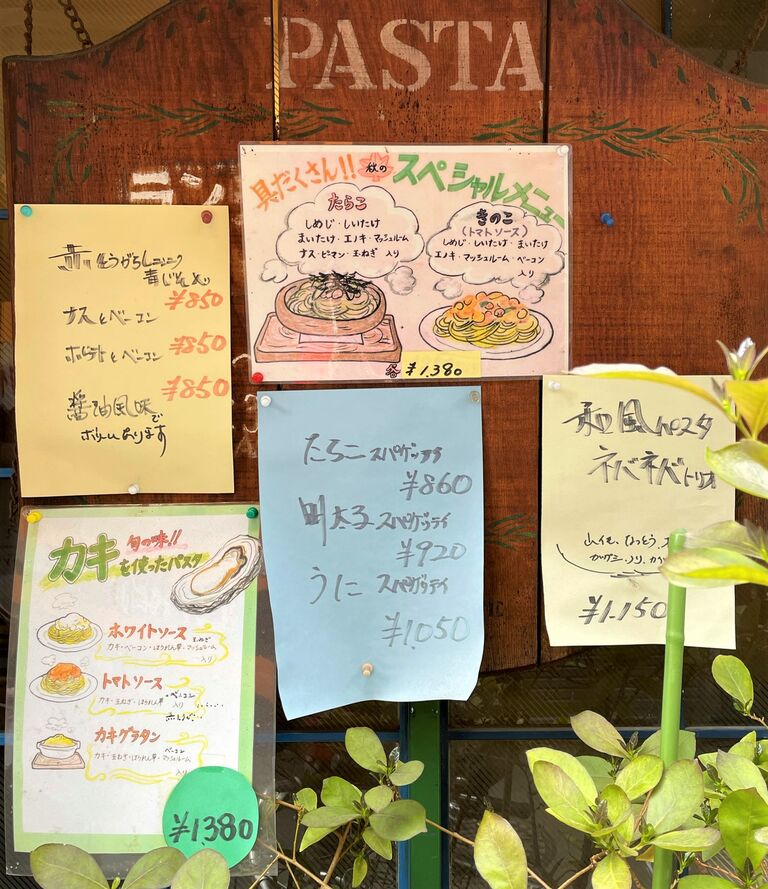 PASTA
具だくさん!! 秋の スペシャルメニュー
たらこ
しめじ・しいたけ
まいたけ・エノキ・マッシュルーム
ナス・ピーマン・玉ねぎ 入り
きのこ
(トマトソース)
しめじ・しいたけ・まいたけ
エノキ・マッシュルーム・ベーコン
入り
各 ¥1,380
赤とうがらし
青じそ入り
¥850
ナスとベーコン
¥850
ポテトとベーコン
¥850
醤油風味で
ボリュームあります
たらこスパゲッティ
¥860
明太子スパゲッティ
¥920
うに スパゲッティ
¥1,050
和風パスタ
ネバネバトリオ
山イモ、なっとう、
¥1,150
旬の味!!
カキを使ったパスタ
ホワイトソース 玉ねぎ
カキ・ベーコン・ほうれん草・マッシュルーム
入り
トマトソース ベーコン
カキ・玉ねぎ・ほうれん草 入り
カキグラタン ベーコン
カキ・玉ねぎ・ほうれん草・マッシュルーム
入り
¥1,380